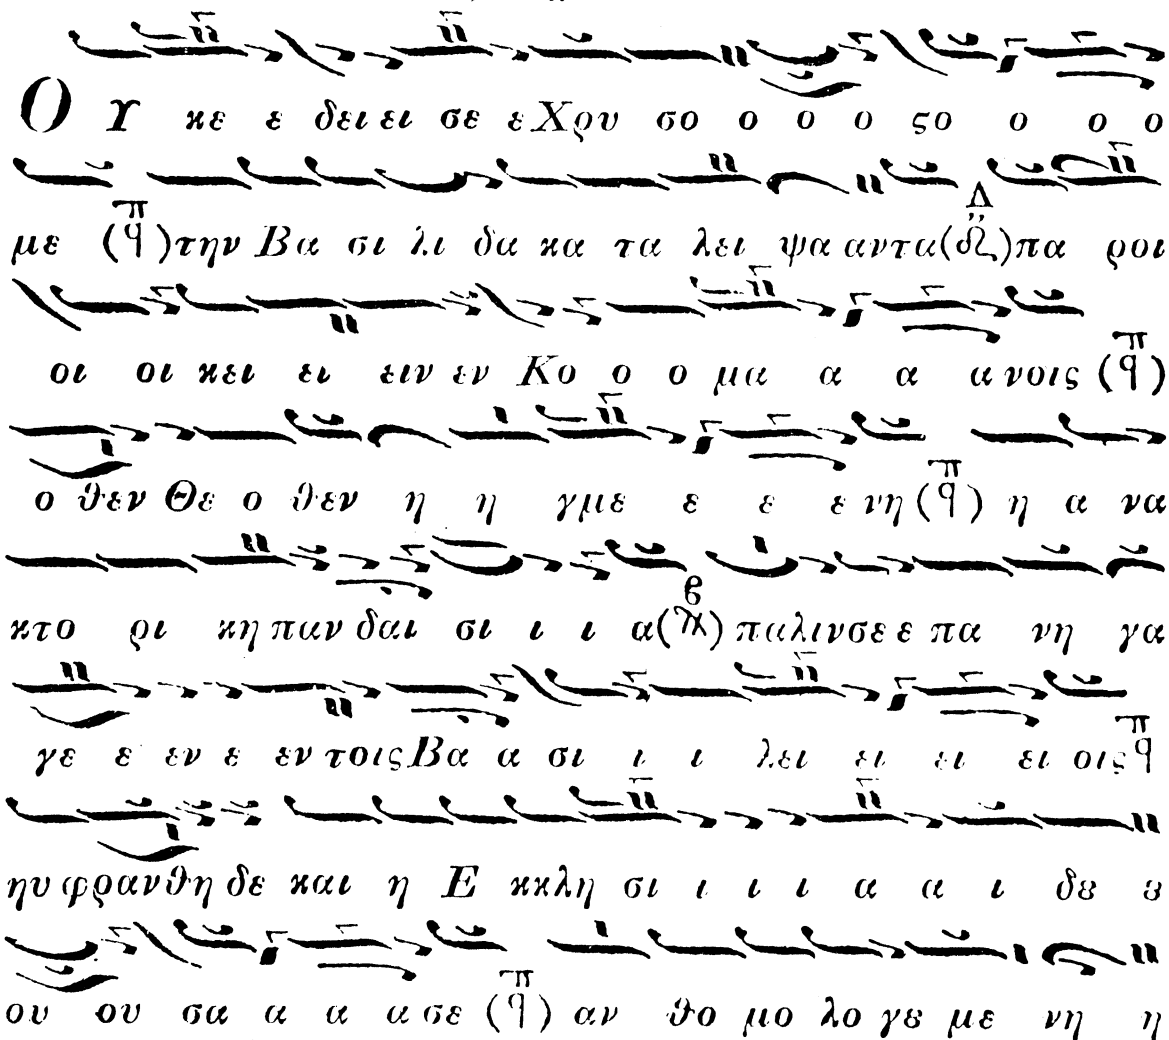 Ο Υ κε ε δει ει σε ε Χρυ σο ο ο ο ςο ο ο ο
με (π q) την Βα σι λι δα κα τα λει ψα αντα (Δ) πα ροι
οι οι κει ει ειν εν Κο ο ο μα α α α νοις (π q)
ο θεν Θε ο θεν η η γμε ε ε ε νη (π q) η α να
κτο ρι κη παν δαι σι ι ι α (β) παλινσε ε πα νη γα
γε ε εν ε εν τοις Βα α σι ι ι λει ει ει ει οις π q
ηυ φρανθη δε και η Ε κκλη σι ι ι ι α α ι δȣ ȣ
ου ου σα α α α σε (π q) αν θο μο λο γȣ με νη η